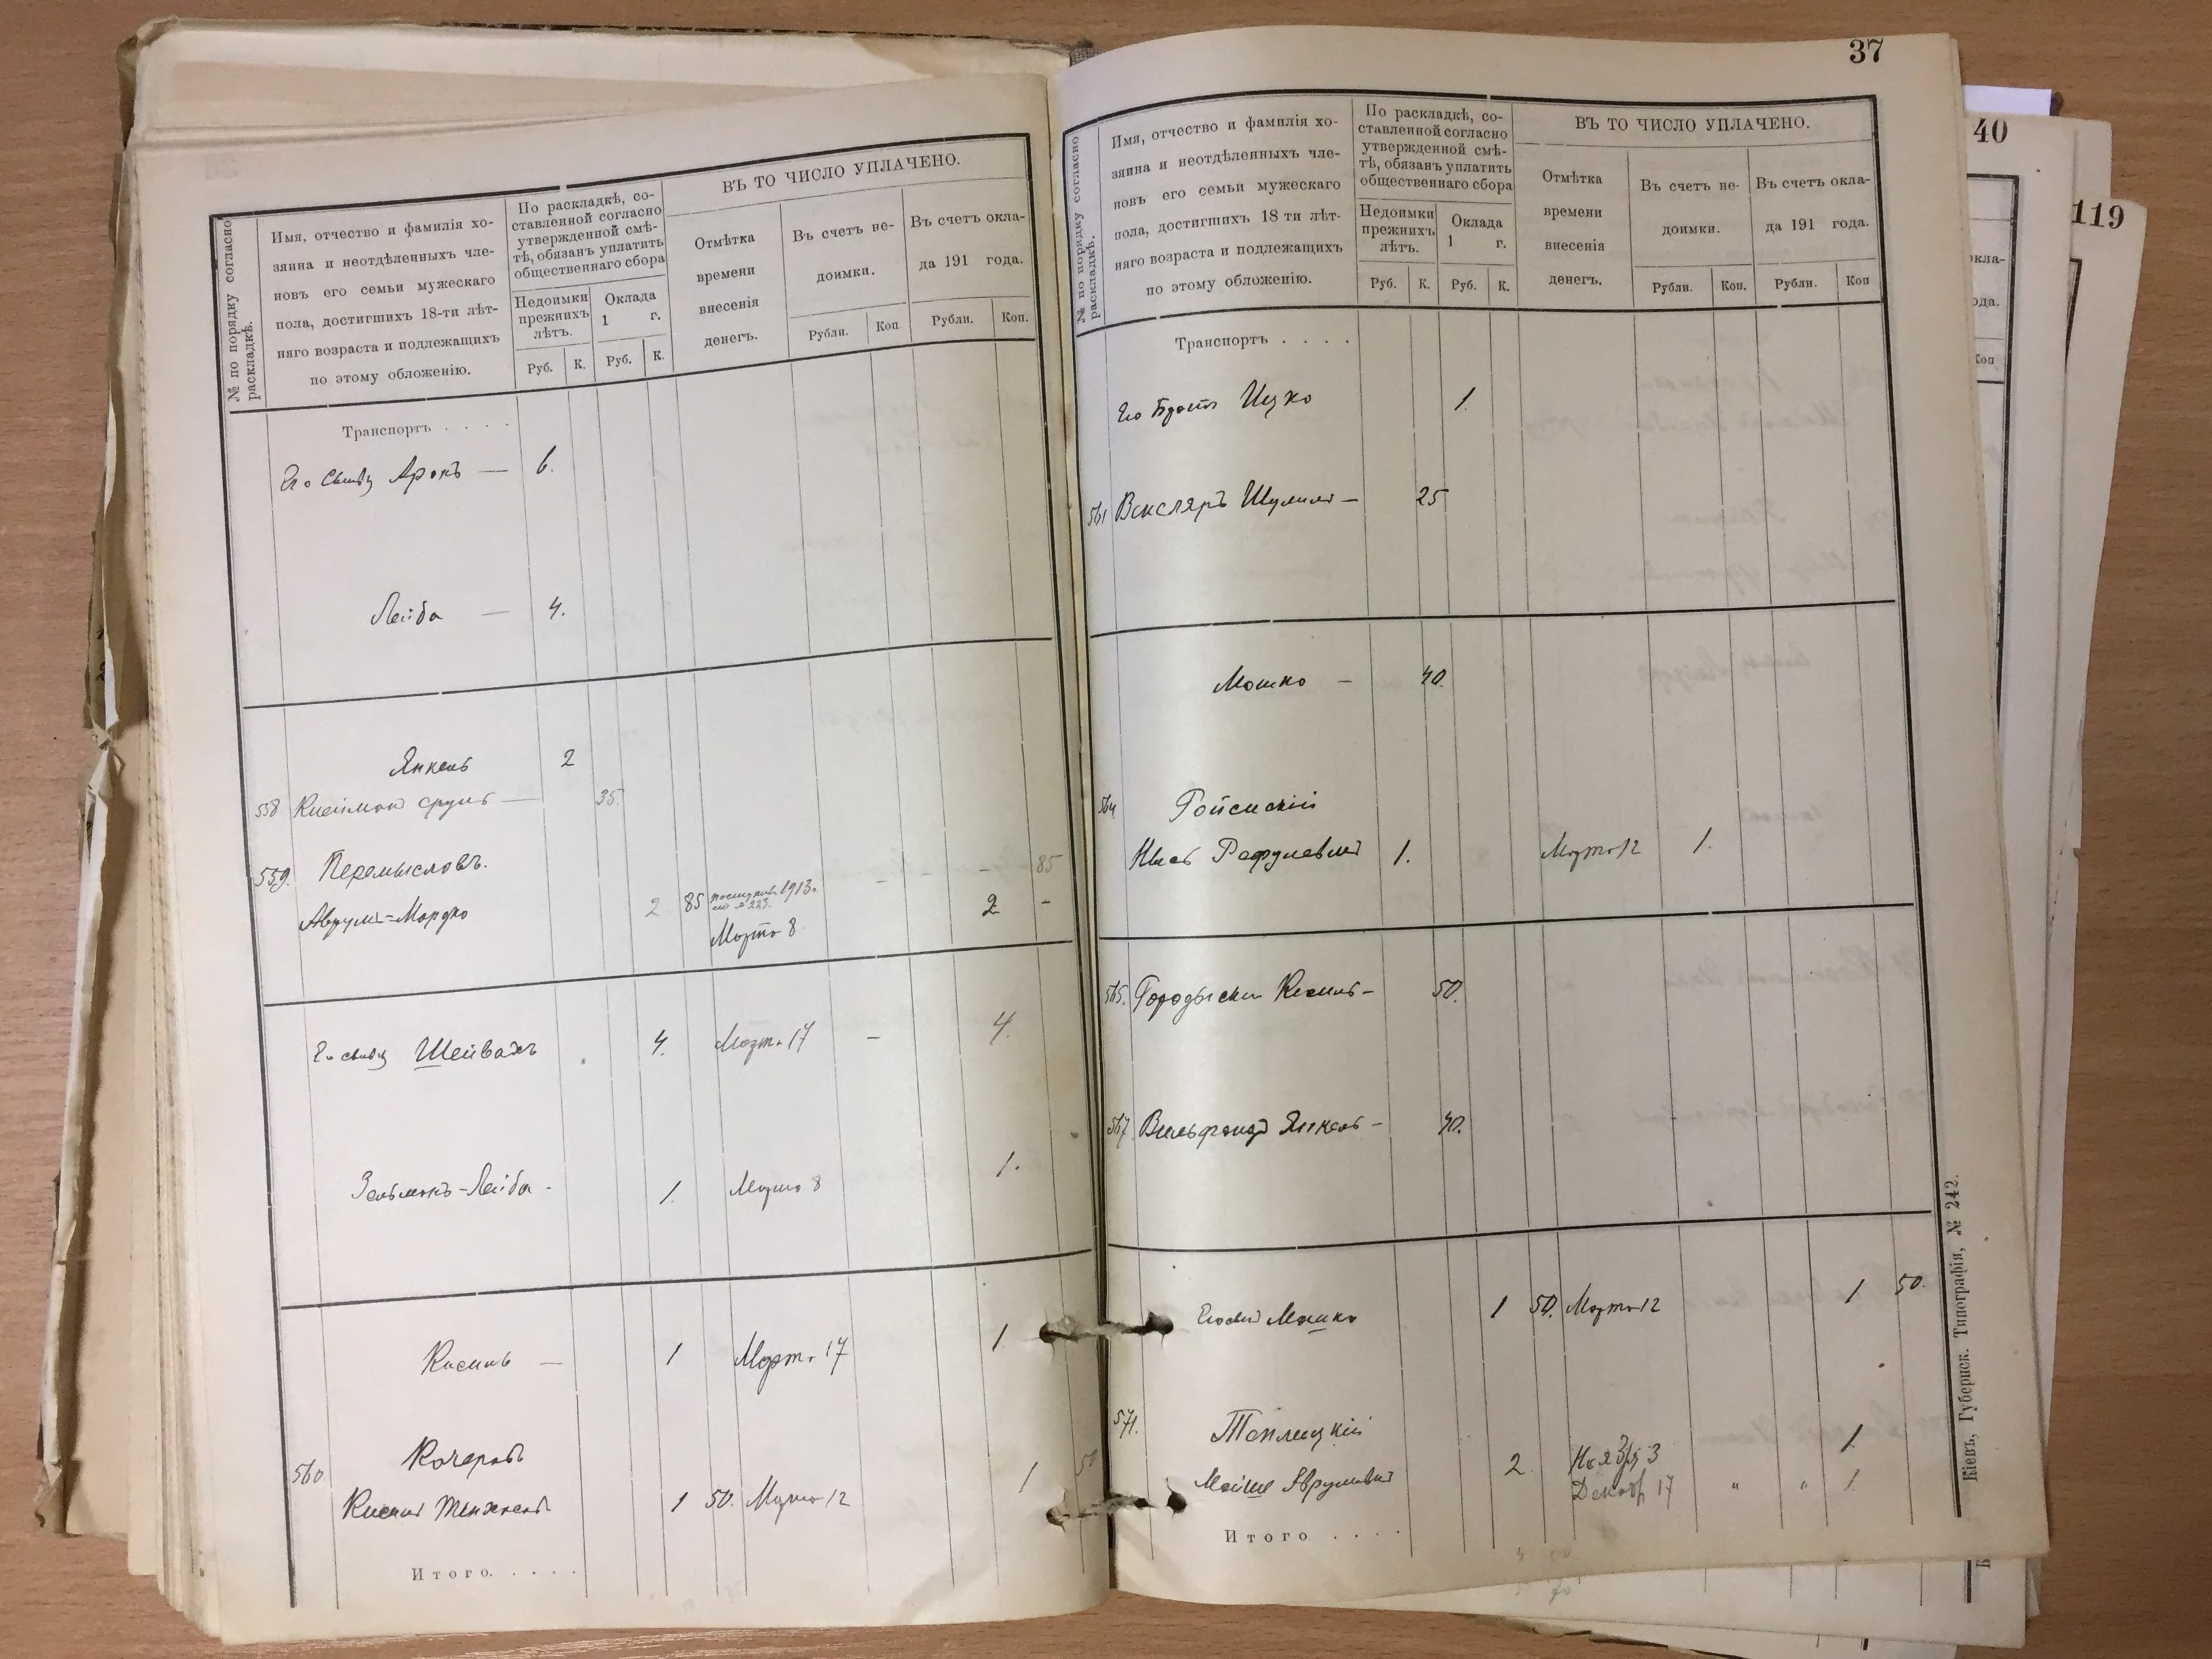 № по порядку согласно
раскладкѣ.
Имя, отчество и фамилія хо-
зяина и неотдѣленныхъ чле-
новъ его семьи мужескаго
пола, достигшихъ 18-ти лѣт-
няго возраста и подлежащихъ
по этому обложенію.
По раскладкѣ, со-
ставленной согласно
утвержденной смѣ-
тѣ, обязанъ уплатить
общественнаго сбора
Недоимки
прежнихъ
лѣтъ.
Оклада
1 г.
Руб. К. Руб. К.
ВЪ ТО ЧИСЛО УПЛАЧЕНО.
Отмѣтка
времени
внесенія
денегъ.
Въ счетъ не-
доимки.
Въ счетъ окла-
да 191 года.
Рубли. Коп Рубли. Коп.
Транспортъ . . . .
Его Сынъ Аронъ — 6.
Лейба — 4.
Янкель 2
558 Клейман Сруль — 35.
559. Перемысловъ. 85
Аврум-Мордко 2 85 1913. № 223. 2 -
Марта 8
Его сынъ Шейвахъ 4. Март. 17 - 4.
Зельманъ-Лейба - 1. Марта 8 1.
Кисиль — 1 Март. 17 1
560 Кочеровъ
1 50. Марта 12 1 50
Итого. . . . .
37
№ по порядку согласно
раскладкѣ.
Имя, отчество и фамилія хо-
зяина и неотдѣленныхъ чле-
новъ его семьи мужескаго
пола, достигшихъ 18 ти лѣт-
няго возраста и подлежащихъ
по этому обложенію.
По раскладкѣ, со-
ставленной согласно
утвержденной смѣ-
тѣ, обязанъ уплатить
общественнаго сбора
Недоимки
прежнихъ
лѣтъ.
Оклада
1 г.
Руб. К. Руб. К.
ВЪ ТО ЧИСЛО УПЛАЧЕНО.
Отмѣтка
времени
внесенія
денегъ.
Въ счетъ не-
доимки.
Въ счетъ окла-
да 191 года.
Рубли. Коп. Рубли. Коп
Транспортъ . . . .
Его Братъ Ицко 1.
561 Векслеръ Шулим — 25
Мошко — 40.
564 Ройсискій
Рафулевич 1. Марта 12 1.
565. Городыски Кисиль - 50.
567 Вильфанд Янкель - 40.
Его сын Мошко 1 50. Марта 12 1 50.
571. Теплицкій
Мойше Аврумович 2. Ноября 3 1.
Декабр 17 " " 1.
Итого . . . .
Кіевъ, Губернск. Типографія, № 242.
40
119